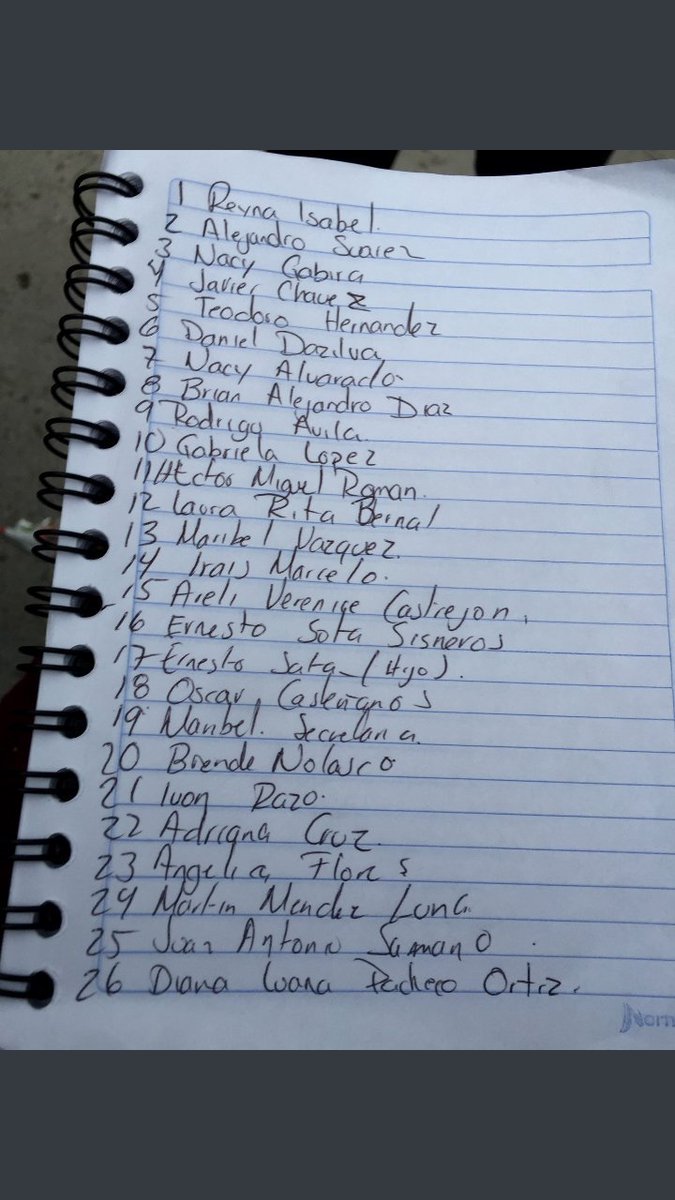 1 Reyna Isabel.
2 Alejandro Suarez
3 Nacy Gabira
4 Javier Chavez
5 Teodoro Hernandez
6 Daniel Dazilva
7 Nacy Alvarado
8 Brian Alejandro Diaz
9 Rodrigo Avila
10 Gabriela Lopez
11 Hector Miguel Roman.
12 Laura Rita Bernal
13 Maribel Vazquez.
14 Irais Marcelo.
15 Areli Verenige Castrejon.
16 Ernesto Sota Sisneros
17 Ernesto Sata (Hijo).
18 Oscar
19 Maribel. Secretaria.
20 Brende Nolasco
21 Ivon Razo.
22 Adriana Cruz.
23 Angelia Flores
24 Martin Mendez Luna
25 Juan Antonio Samano.
26 Diana Ivana Pacheco Ortiz.
Norm